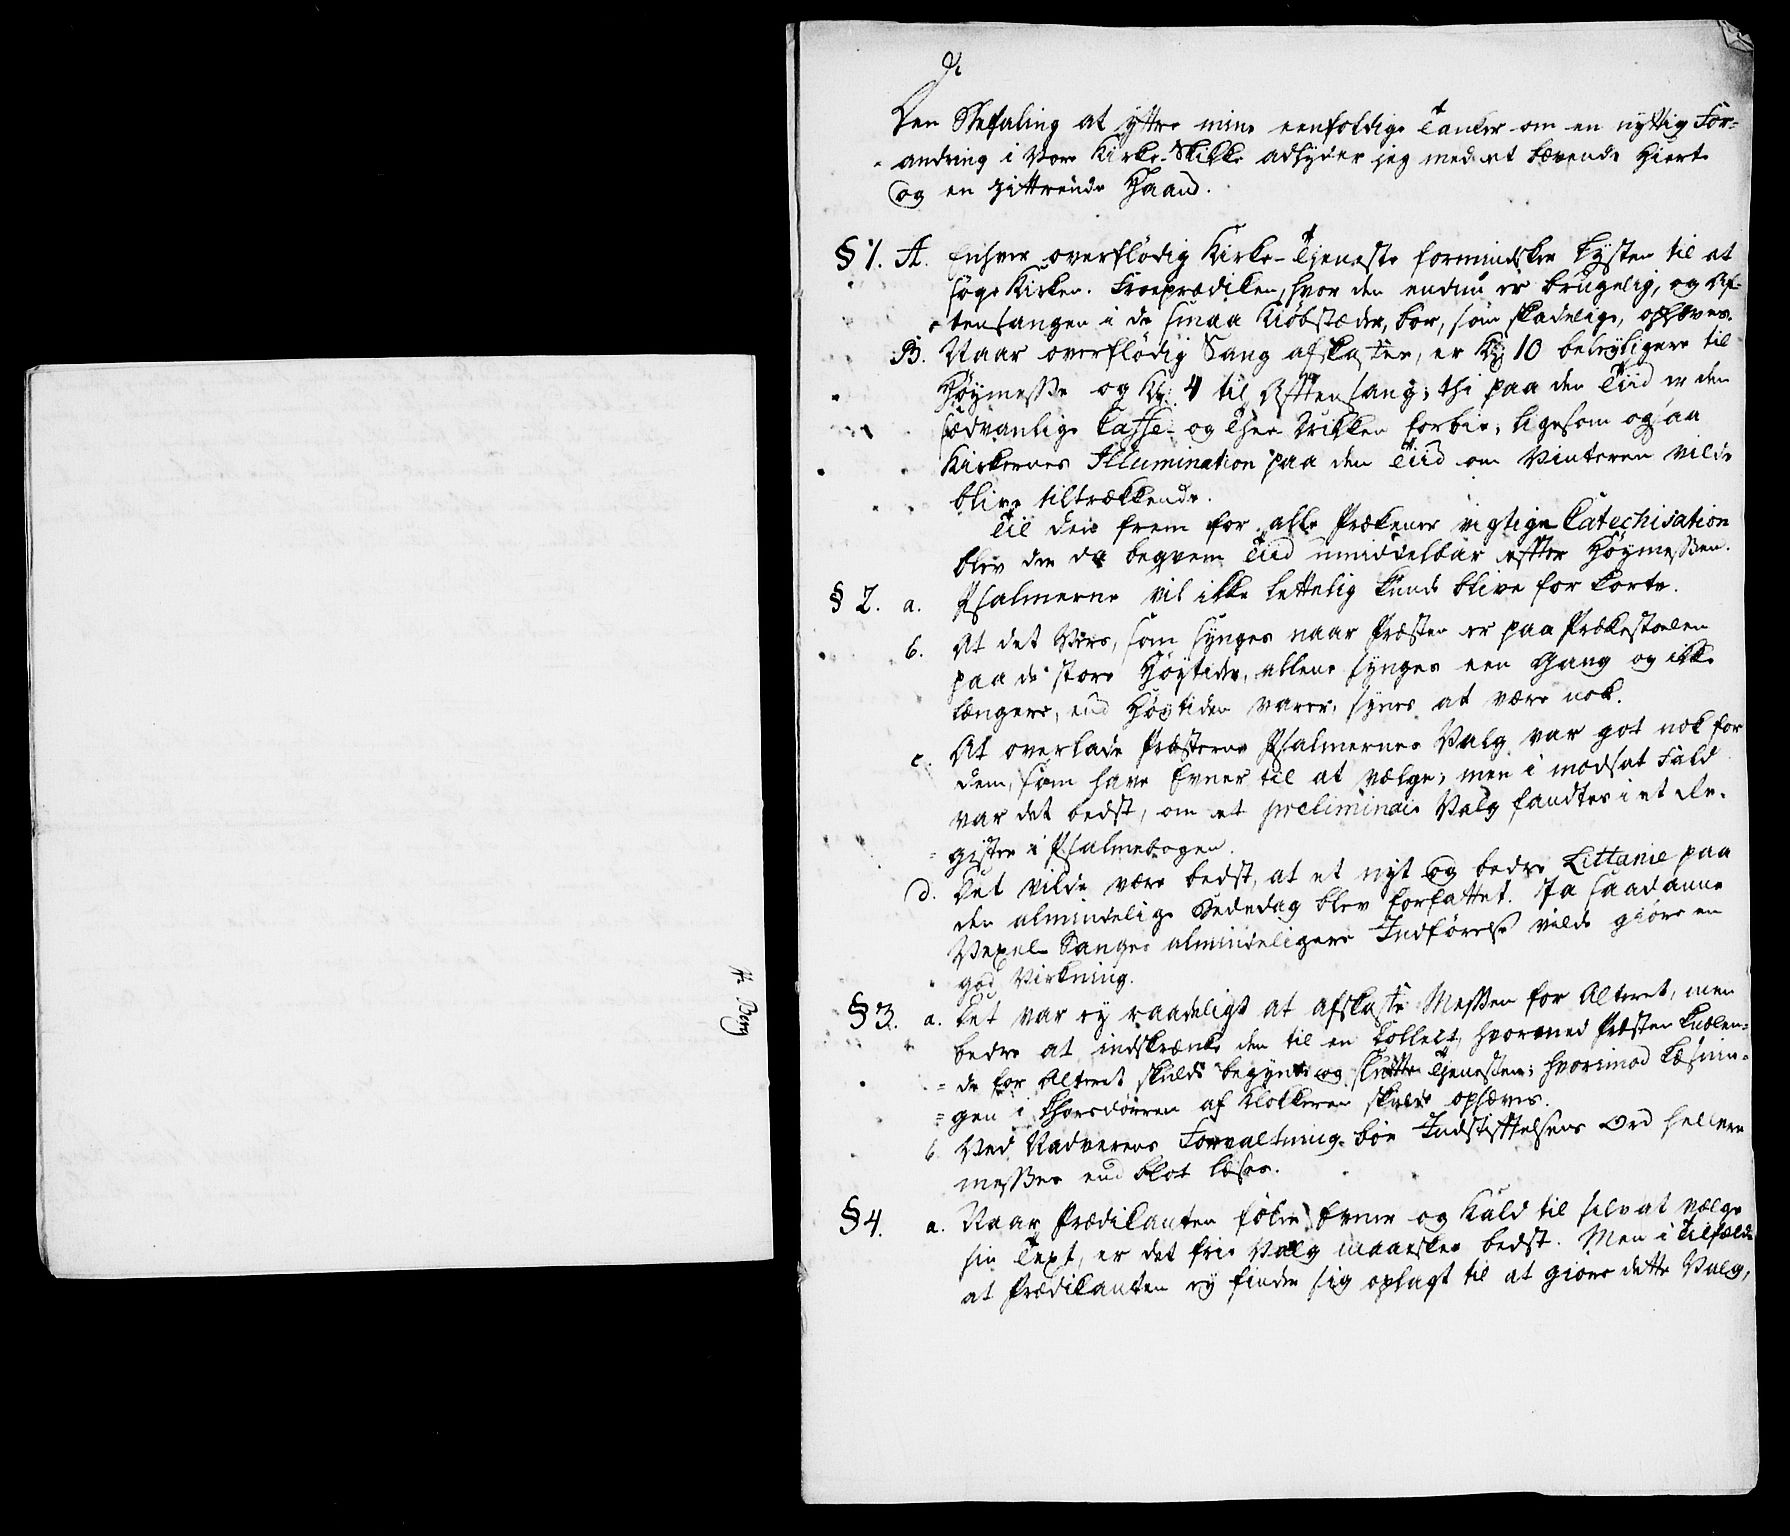 Den Befaling at yttre mine eenfoldige Tanker om en nyttig For-
andring i Vore Kirke-Skikke adlyder jeg med et bævende Hierte
og en zittrende Haand.
§ 1. A. Enhver overflödig Kirke-Tjeneste formindsker Lysten til at
søge Kirken. Froeprædiken, hvor den endnu er brugelig, og Af-
tensangen i de smaa Kiöbstæder, bör, som skadelige, ophæves.
B. Naar overflödig Sang afskaffes, er Kl: 10 beleyligere til
Höymesse og Kl: 4 til Afftensang; thi paa den Tiid er den
sædvanlige Caffe- og Thee Drikken forbie; ligesom ogsaa
Kirkernes Illumination paa den Tiid om Vinteren vilde
blive tiltrækkende.
Til den frem for alle Prækener vigtige Catechisation
blev der da beqvem Tiid umiddelbar effter Höymessen.
§ 2. a. Psalmerne vil ikke lettelig kunde blive for korte.
b. At det Vers, som synges naar Præsten er paa Prækestoelen
paa de store Höytider, allene synges een Gang og ikke
længere, end Höytiden varer, synes at være nok.
c. At overlade Præsterne Psalmernes Valg var got nok for
dem, som have Evner til at vælge; men i modsat Fald
var det bedst, om et preliminair Valg fandtes i et Re-
gister i Psalmebogen.
d. Det vilde være bedst, at et nyt og bedre Littanie paa
den almindelige Bededag blev forfattet. Ja saadanne
Vexel-Sanges almindeligere Indförelse vilde giöre en
god Virkning.
§ 3. a. Det var ey raadeligt at afskaffe Messen for Alteret, men
bedre at indskrænke den til en Collect, hvormed Præsten knælen-
de for Alteret skulde begynde og slutte Tjenesten; hvorimod Læsnin-
gen i Choersdörren af Klokkeren skulde ophæves.
b. Ved Nadverens Forvaltning bör Indstifftelsens Ord hellere
messes end blot læses.
§ 4. a. Naar Prædikanten föler Evner og Kald til selv at vælge
sin Text, er det frie Valg maaeskee bedst. Men i Tilfælde
at Prædikanten ey finder sig oplagt til at giöre dette Valg,